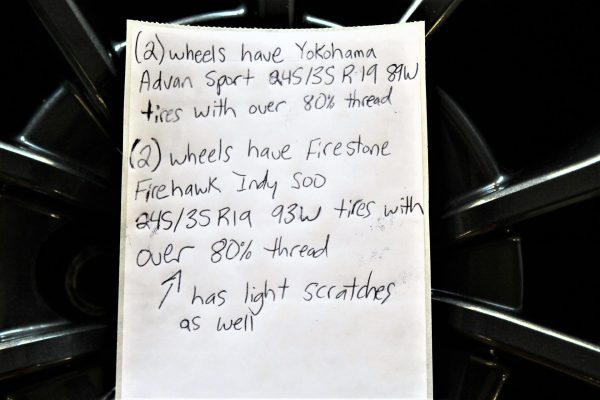 (2) wheels have Yokohama
Advan Sport 245/35 R-19 89W
tires with over 80% thread
(2) wheels have Firestone
Firehawk Indy 500
245/35R19 93W tires with
over 80% thread
↗ has light scratches
as well